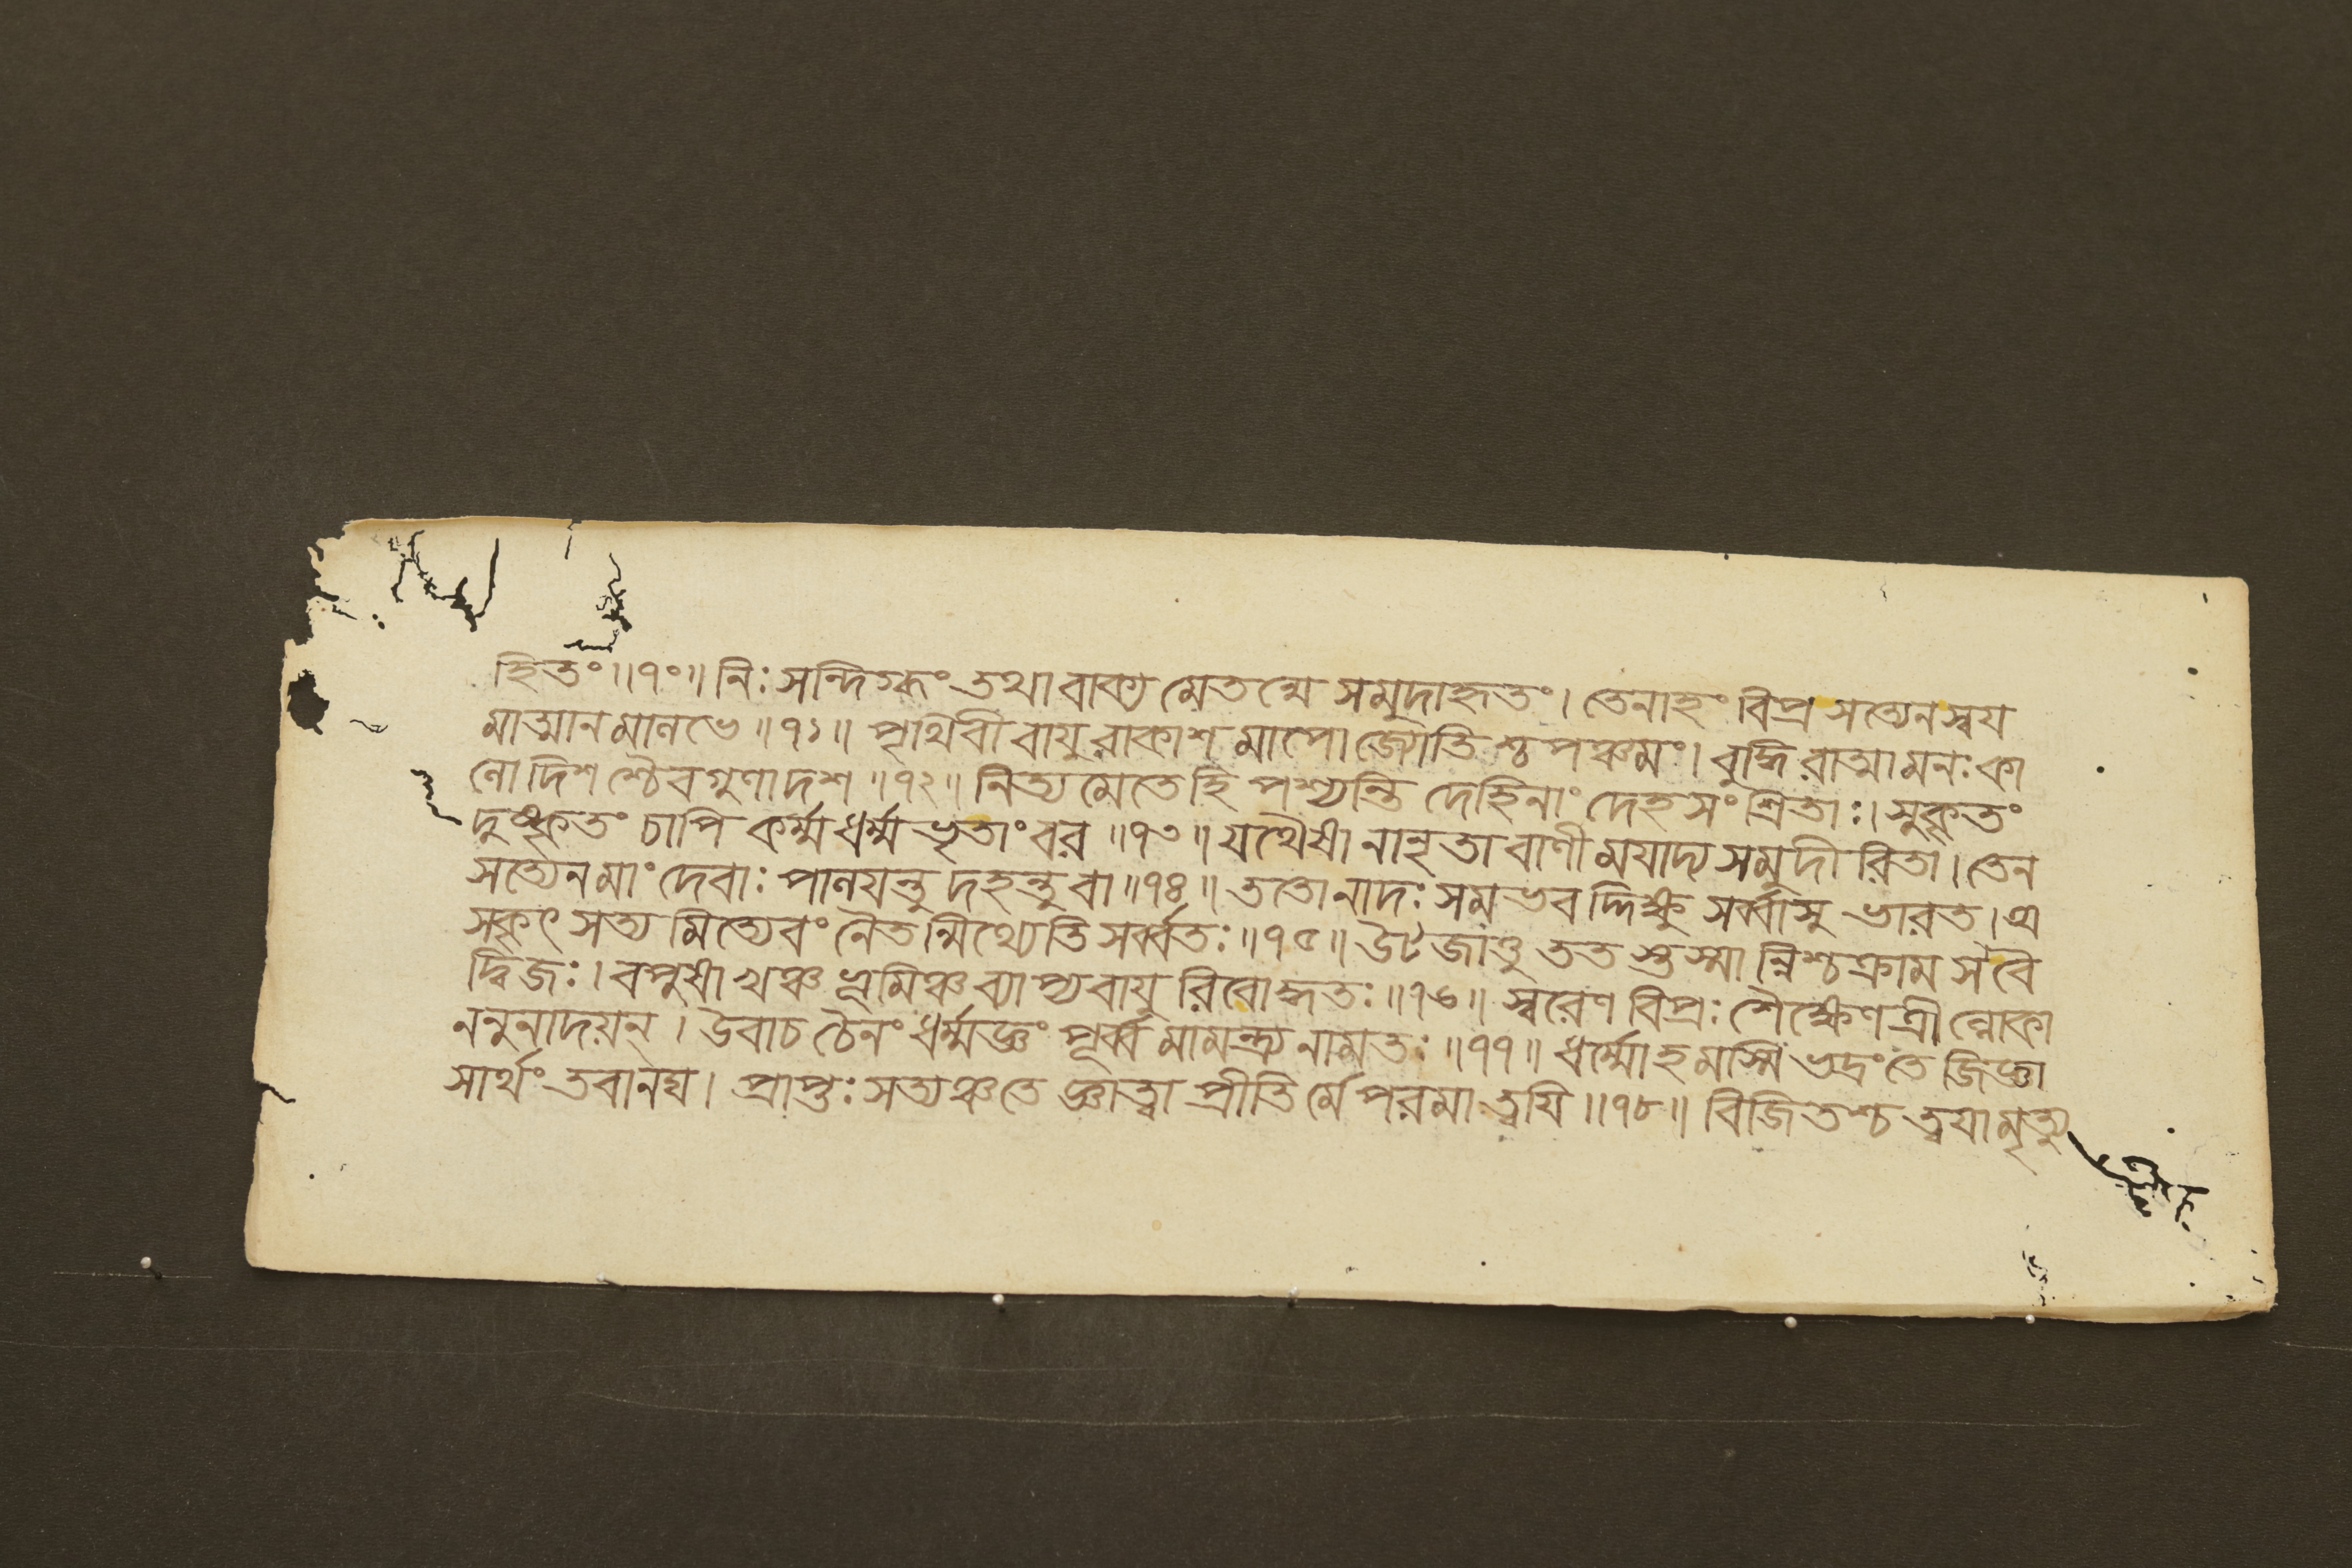 হিতং॥৭০॥ নিঃসন্দিগ্ধং তথা বাক্য মেতন্মে সমুদাহৃতং। তেনাহং বিপ্র সত্যেন স্বয
মাত্মানমালভে॥৭১॥ পৃথিবী বাযু রাকাশ মাপো জ্যোতিশ্চ পঞ্চমং। বুদ্ধি রাত্মা মনঃ কা
লো দিশ শ্চৈব গুণা দশ॥৭২॥ নিত্য মেতে হি পশ্যন্তি দেহিনাং দেহ সংশ্রিতাঃ। সুকৃতং
দুষ্কৃতং চাপি কর্ম্ম ধর্ম্ম ভৃতাং বর॥৭৩॥ যথৈষা নানৃতা বাণী মযাদ্য সমুদীরিতা। তেন
সত্যেন মাং দেবাঃ পালযন্তু দহন্তু বা॥৭৪॥ ততো নাদঃ সমভবদ্দিক্ষু সর্ব্বাসু ভারত। অ
সকৃৎ সত্য মিত্যেবং নৈতন্মিথ্যেতি সর্ব্বতঃ॥৭৫॥ উটজাত্তু ততস্তস্মান্নিশ্চক্রাম স বৈ
দ্বিজঃ। বপুষা খঞ্চ ভূমিঞ্চ ব্যাপ্য বাযু রিবোদ্ধতঃ॥৭৬॥ স্বরেণ বিপ্রঃ শৈক্ষেণ ত্রীল্লোকা
ননুনাদয়ন্। উবাচ চৈনং ধর্ম্মজ্ঞং পূর্ব্ব মামন্ত্র্য নামতঃ॥৭৭॥ ধর্ম্মোহমস্মি ভদ্রং তে জিজ্ঞা
সার্থং তবানঘ। প্রাপ্তঃ সত্যঞ্চ তে জ্ঞাত্বা প্রীতির্মে পরমা ত্বযি॥৭৮॥ বিজিতশ্চ ত্বযা মৃত্যু